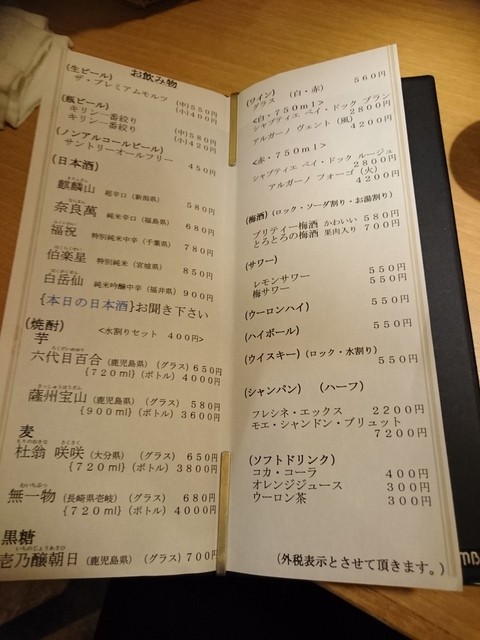 お飲み物
(生ビール)
ザ・プレミアムモルツ (中)550円
(小)400円
(瓶ビール)
キリン一番絞り (中)580円
キリン一番絞り (小)420円
(ノンアルコールビール)
サントリーオールフリー 450円
(日本酒)
麒麟山 超辛口(新潟県) 580円
奈良萬 純米辛口(福島県) 680円
福祝 特別純米中辛(千葉県) 780円
伯楽星 特別純米(宮城県) 850円
白岳仙 純米吟醸中辛(福井県) 900円
{本日の日本酒}お聞き下さい
(焼酎) <水割りセット 400円>
芋
六代目百合 (鹿児島県) (グラス) 650円
{720ml}(ボトル) 4000円
薩州宝山 (鹿児島県) (グラス) 580円
{900ml}(ボトル) 3600円
麦
杜翁 咲咲 (大分県) (グラス) 650円
{720ml}(ボトル) 3800円
無一物 (長崎県壱岐) (グラス) 680円
{720ml}(ボトル) 4000円
黒糖
壱乃醸朝日 (鹿児島県) (グラス) 700円
(ワイン) (白・赤)
グラス 560円
<白・750ml>
シャプティエ ペイ・ドック ブラン
2800円
アルガーノ ヴェント(風)
4200円
<赤・750ml>
シャプティエ ペイ・ドック ルージュ
2800円
アルガーノ フォーゴ(火)
4200円
(梅酒)(ロック・ソーダ割り・お湯割り)
プリティー梅酒 かわいい 580円
とろとろの梅酒 果肉入り 700円
(サワー)
レモンサワー 550円
梅サワー 550円
(ウーロンハイ) 550円
(ハイボール) 550円
(ウイスキー)(ロック・水割り)
550円
(シャンパン) (ハーフ)
フレシネ・エックス 2200円
モエ・シャンドン・ブリュット
7200円
(ソフトドリンク)
コカ・コーラ 400円
オレンジジュース 300円
ウーロン茶 300円
(外税表示とさせて頂きます。)